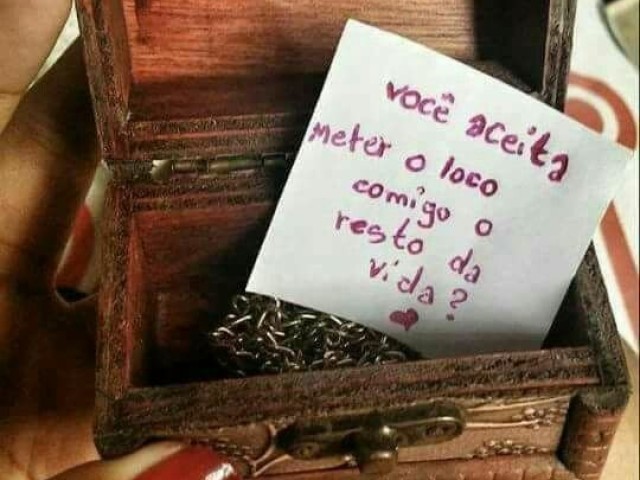 você aceita
meter o loco
comigo o
resto da
vida?